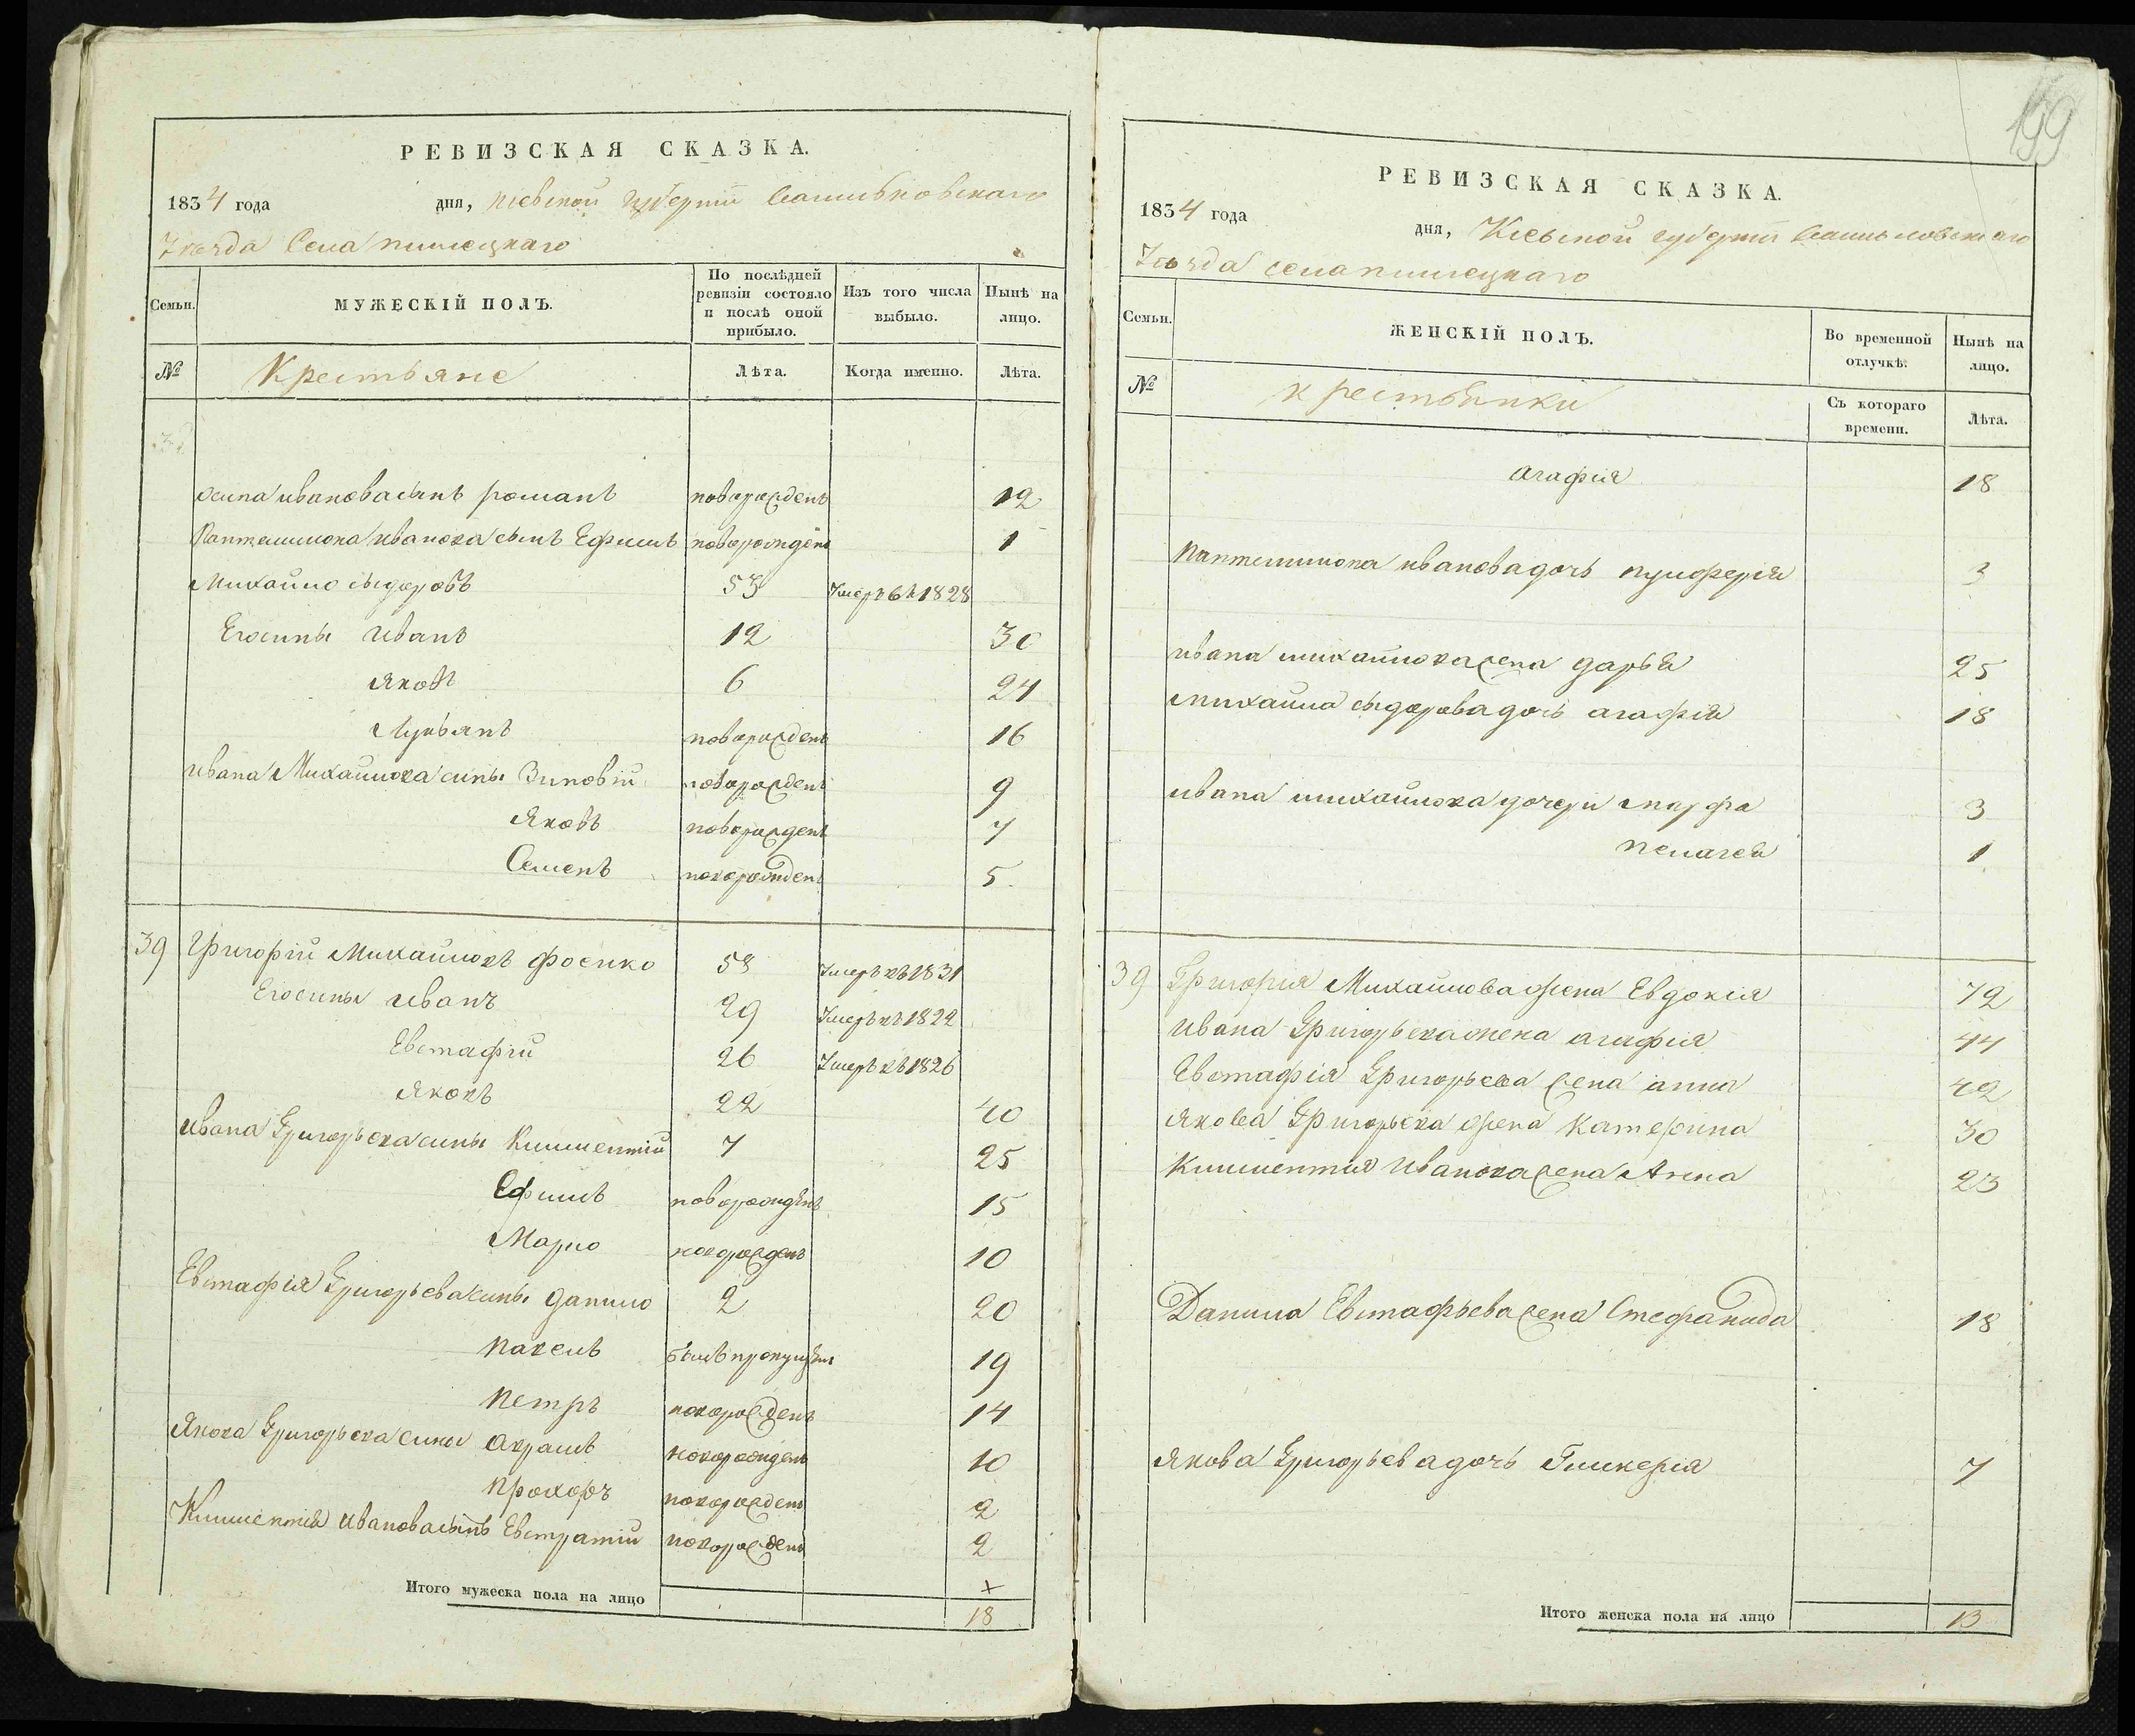 РЕВИЗСКАЯ СКАЗКА.
1834 года дня, Кіевской губерніи Васильковскаго
Уезда Села
Семьи.
МУЖЕСКІЙ ПОЛЪ.
По послѣдней ревизіи состояло и послѣ оной прибыло.
Изъ того числа выбыло.
Нынѣ на лицо.
№
Крестьяне
Лѣта.
Когда именно.
Лѣта.
осипа иванова сынъ романъ новорожденъ 12
Пантелимона иванова сынъ Ефимъ новорожденъ 1
Михайло сыдоровъ 53 Умеръ въ 1828
Его сыны иванъ 12 30
яковъ 6 24
Лукьянъ новорожденъ 16
ивана Михайлова сыны Зиновій новорожденъ 9
Яковъ новорожденъ 7
Семенъ новорожденъ 5
39 Григорій Михайловъ фоенко 58 Умеръ въ 1831
Его сыны иванъ 29 Умеръ въ 1822
Евстафій 26 Умеръ въ 1826
яковъ 22 40
ивана Григорьева сыны Климентій 7 25
Ефимъ новорожденъ 15
Марко новорожденъ 10
Евстафія Григорьева сыны данило 2 20
павелъ былъ пропущенъ 19
петръ новорожденъ 14
Якова Григорьева сыны аврамъ новорожденъ 10
прохоръ новорожденъ 2
Климентія иванова сынъ Евстратій новорожденъ 2
Итого мужеска пола на лицо 18
199
РЕВИЗСКАЯ СКАЗКА.
1834 года дня, Кіевской губерніи Васильковскаго
Уезда села
Семьи.
ЖЕНСКІЙ ПОЛЪ.
Во временной отлучкѣ.
Нынѣ на лицо.
№
крестьянки
Съ котораго времени.
Лѣта.
агафія 18
пантелимона иванова дочь пулферія 3
ивана михайлова жена дарья 25
михайла сыдорова дочь агафія 18
ивана михайлова дочери марфа 3
пелагея 1
39 Григорія Михайлова жена Евдокія 72
ивана Григорьева жена агафія 44
Евстафія Григорьева жена анна 42
якова Григорьева жена Катерина 30
Климентія иванова жена Анна 23
Данила Евстафьева жена Стефанида 18
якова Григорьева дочь Гликерія 7
Итого женска пола на лицо 13